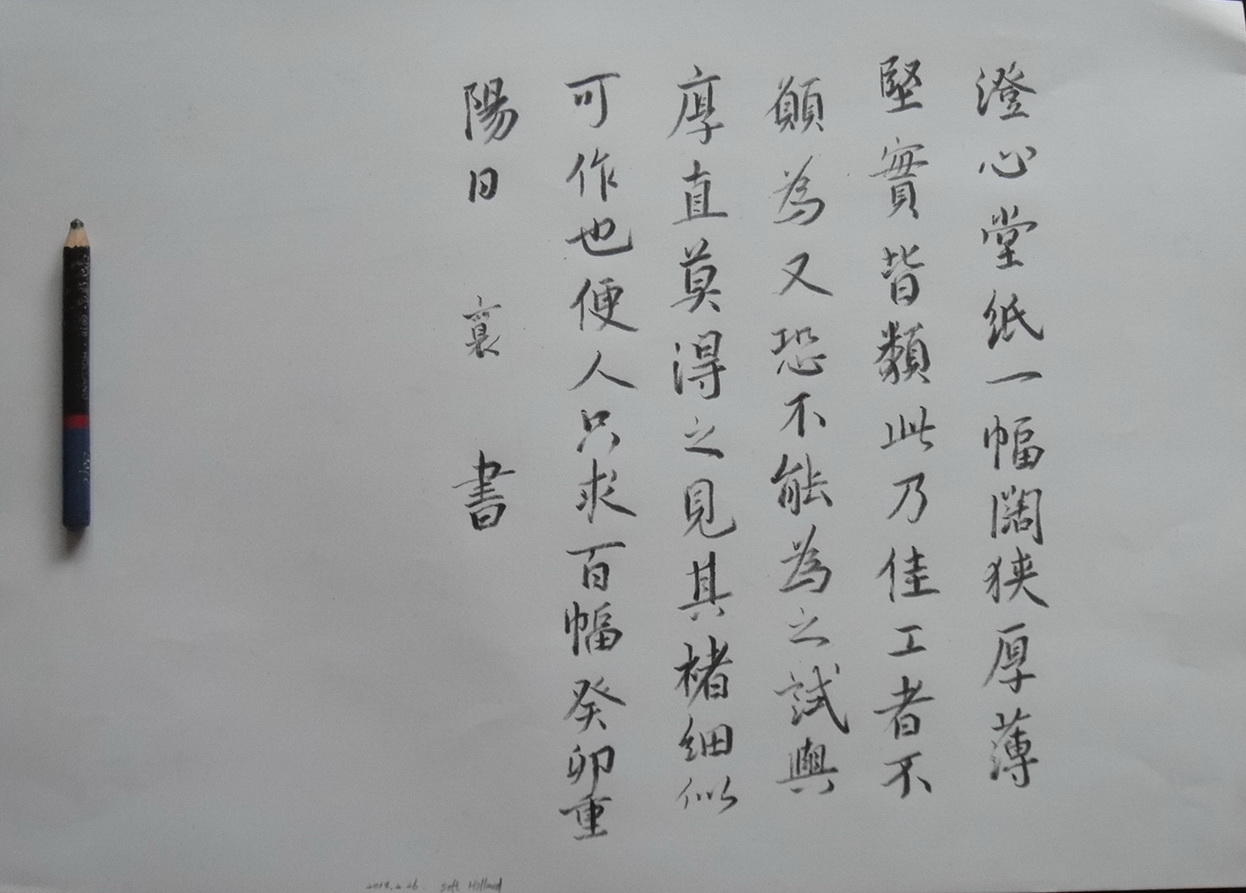 澄心堂紙一幅闊狹厚薄
堅實皆類此乃佳工者不
願為又恐不能為之試與
厚直莫得之見其楮細似
可作也便人只求百幅癸卯重
陽日 襄 書
soft Holland